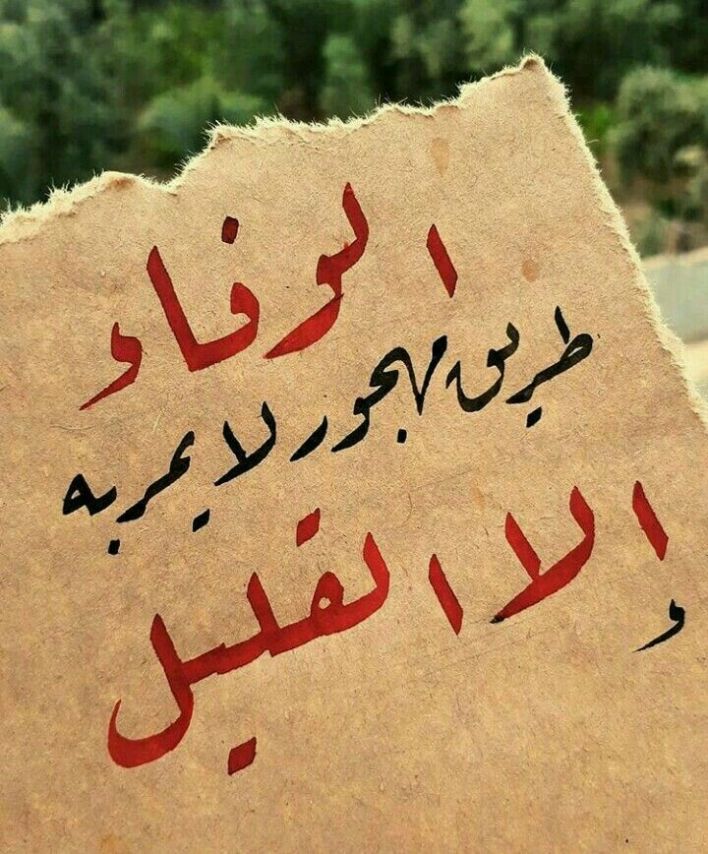 الوفاء
طريق مهجور لا يمر به
إلا القليل